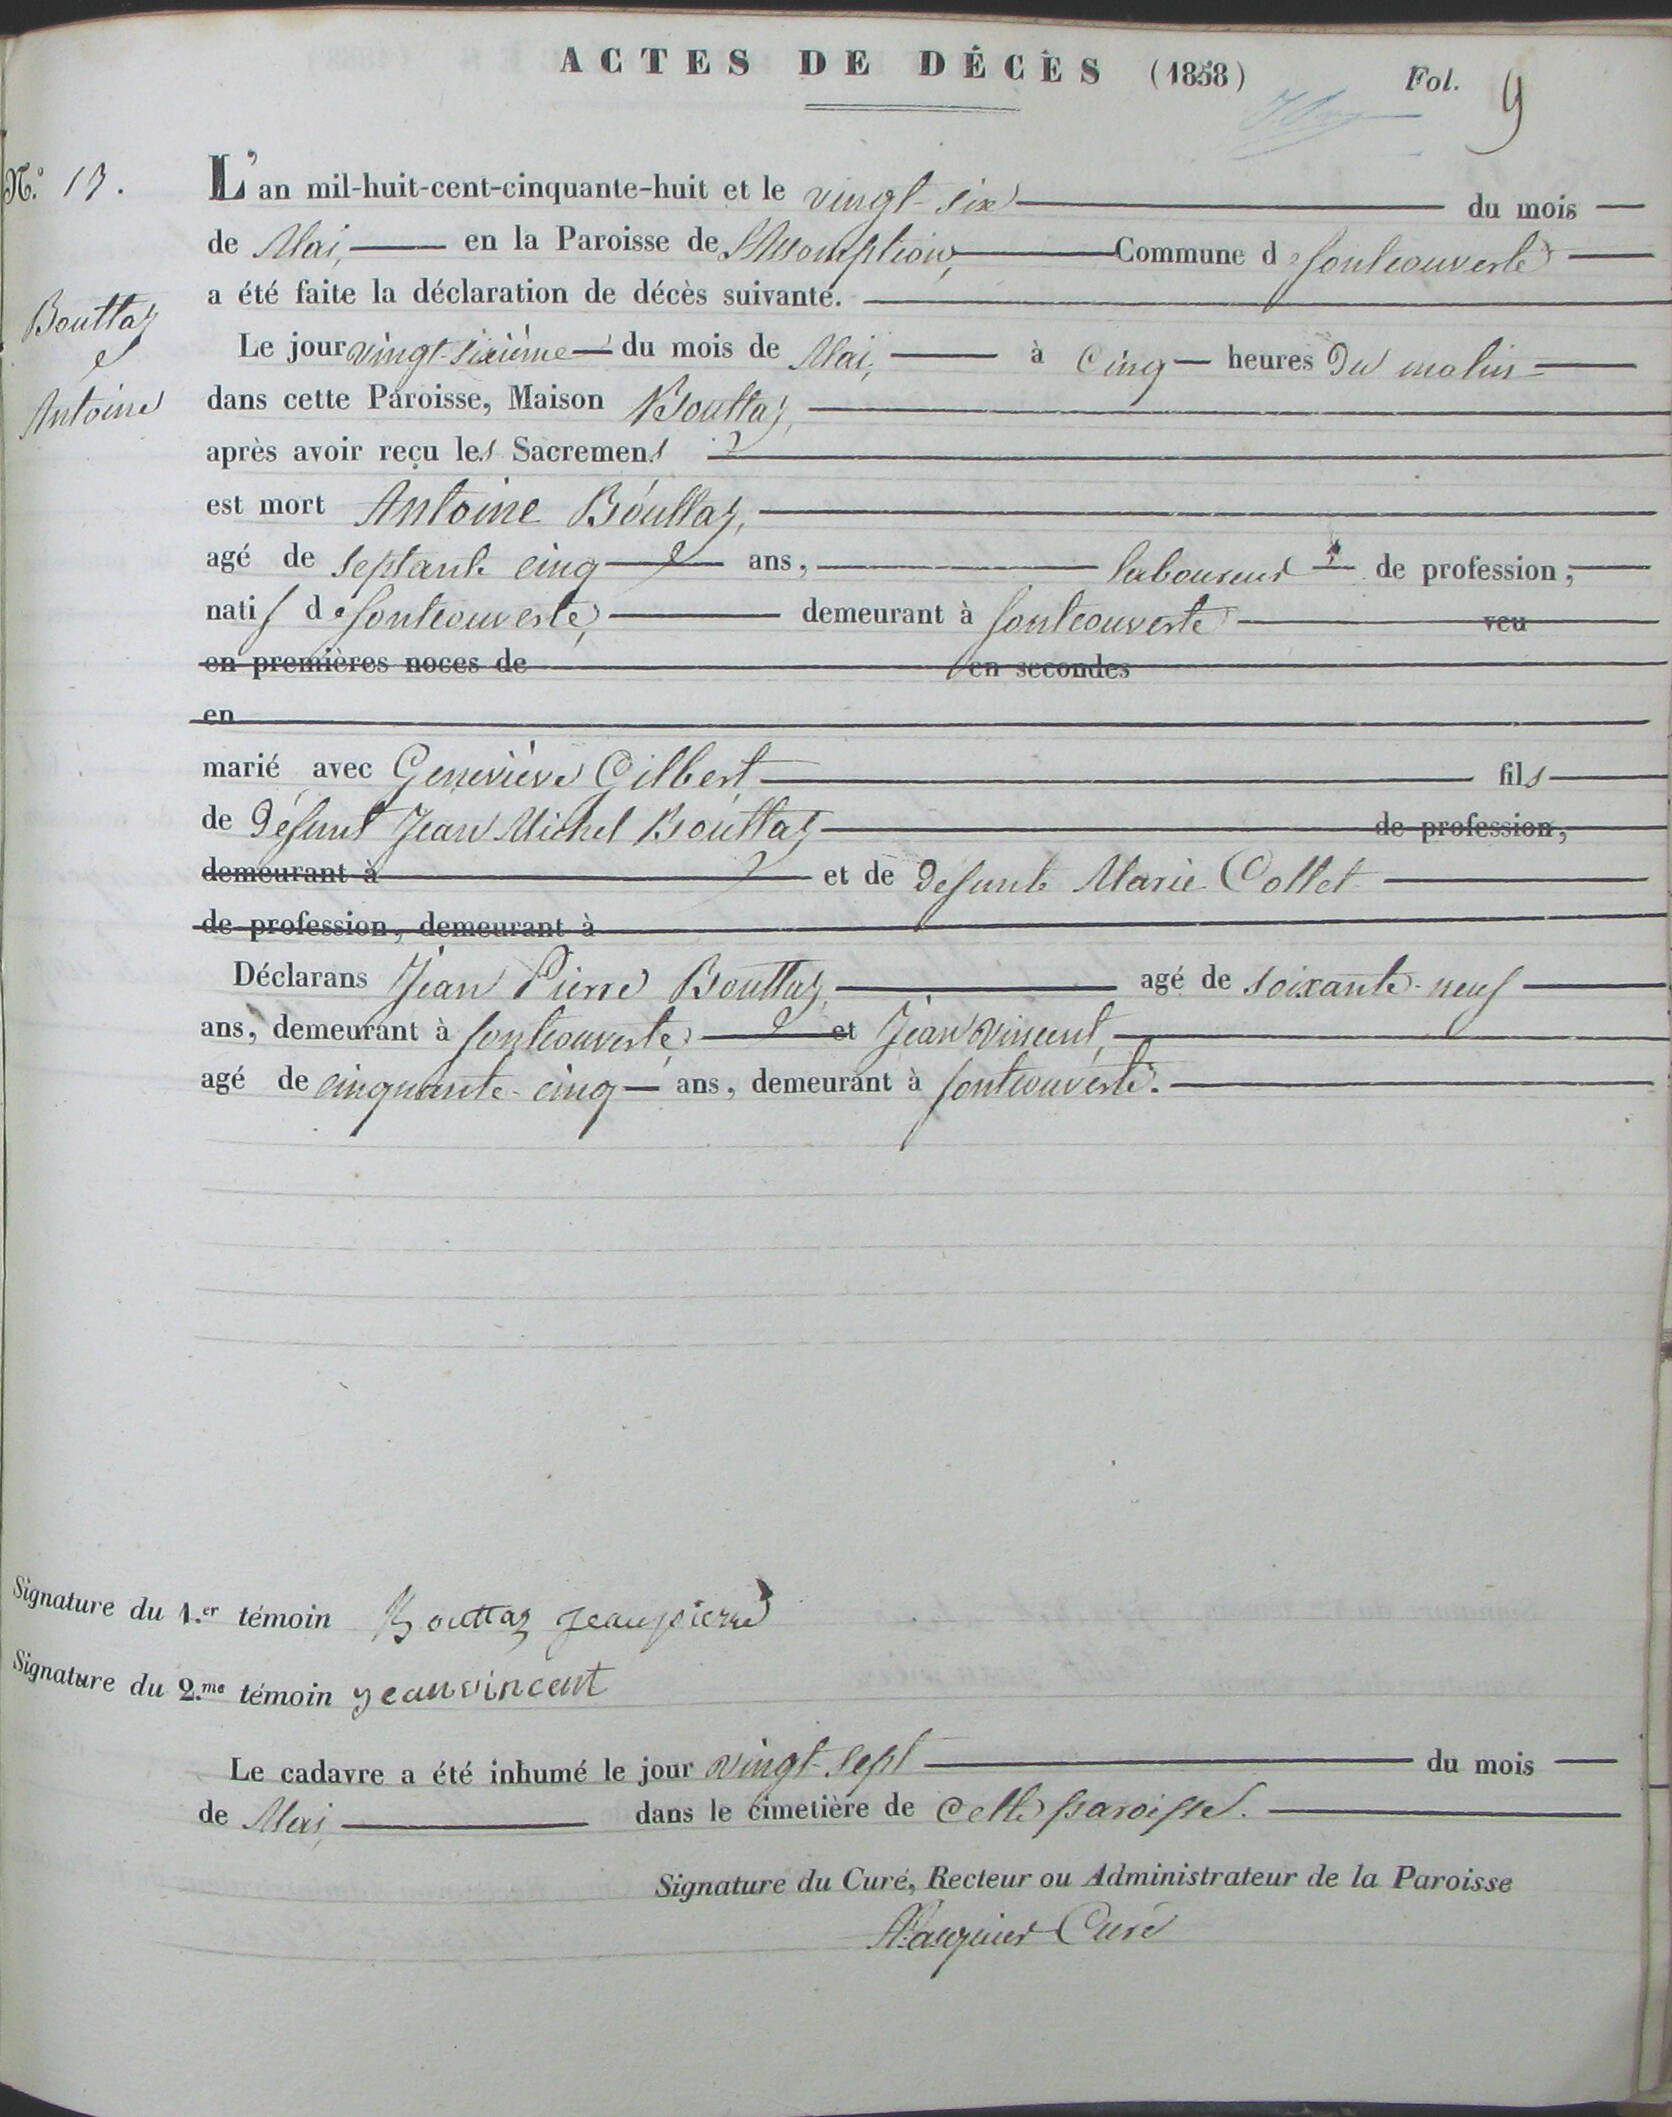 ACTES DE DÉCÈS (1858) Fol. 9
N.º 17.
L'an mil-huit-cent-cinquante-huit et le vingt-six du mois
de Mai, en la Paroisse de l'Assomption, Commune de fontcouverte
a été faite la déclaration de décès suivante.
Bouttaz
Antoine
Le jour vingt-sixième du mois de Mai, à cinq heures du matin
dans cette Paroisse, Maison Bouttaz,
après avoir reçu les Sacremens
est mort Antoine Bouttaz,
agé de septante cinq ans, laboureur de profession,
natif de fontcouverte, demeurant à fontcouverte veu
en premières noces de en secondes
en
marié avec Geneviève Gilbert, fils
de défunt Jean Michel Bouttaz de profession,
demeurant à et de défunte Marie Collet
de profession, demeurant à
Déclarans Jean Pierre Bouttaz, agé de soixante-neuf
ans, demeurant à fontcouverte et Jean Vincent,
agé de cinquante-cinq ans, demeurant à fontcouverte.
Signature du 1.er témoin Bouttaz jeanpierre
Signature du 2.me témoin jeanvincent
Le cadavre a été inhumé le jour vingt-sept du mois
de Mai, dans le cimetière de cette paroisse.
Signature du Curé, Recteur ou Administrateur de la Paroisse
Curé